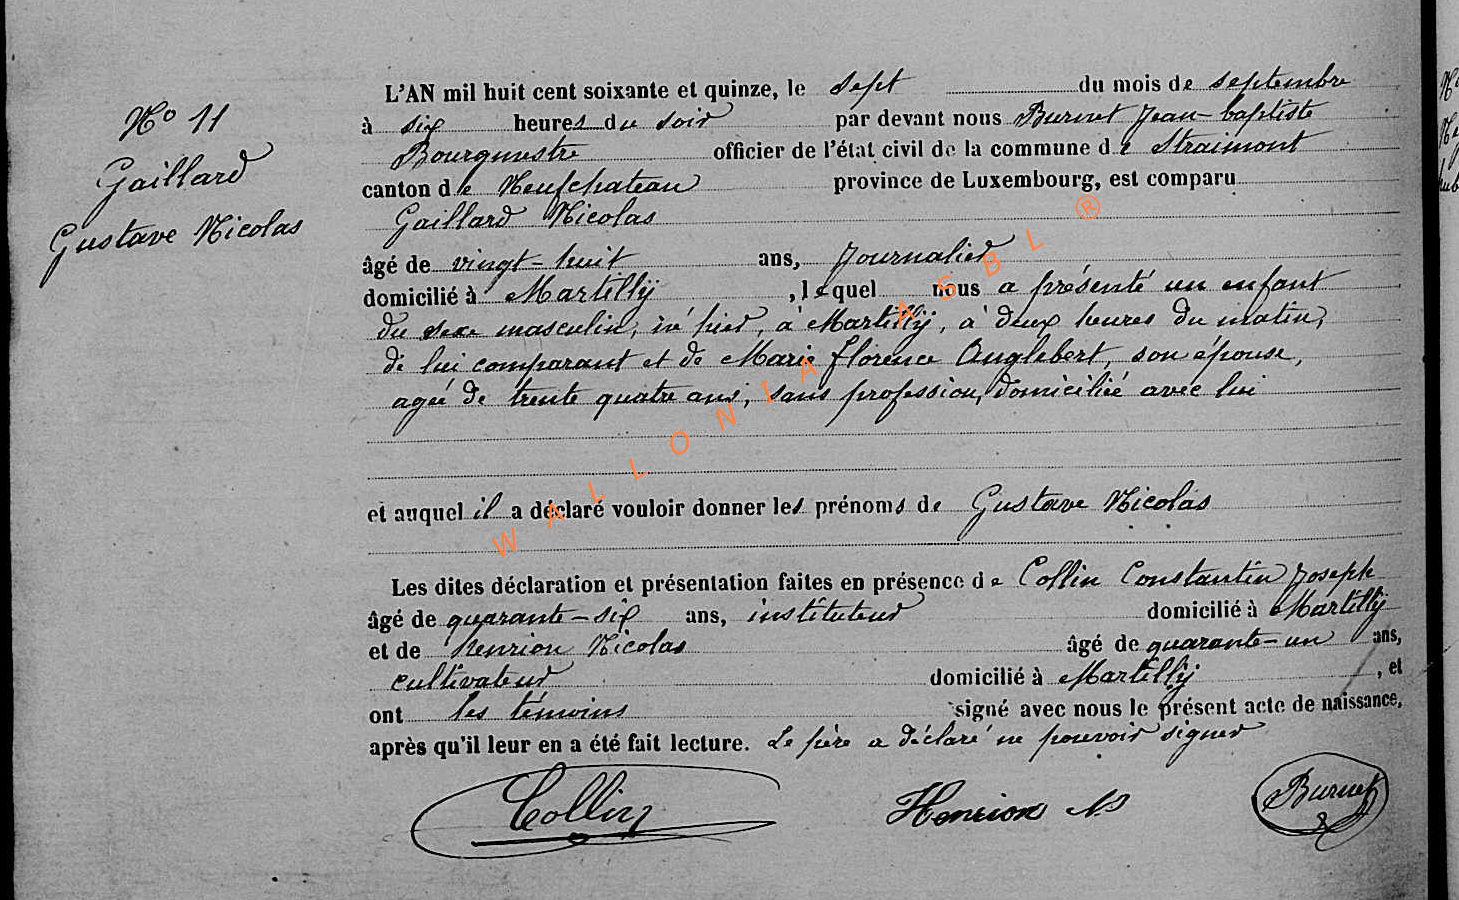 N° 11
Gaillard
Gustave Nicolas
L'AN mil huit cent soixante et quinze, le sept du mois de septembre
à six heures du soir par devant nous Burnet Jean-baptiste
Bourgmestre officier de l'état civil de la commune de Straimont
canton de Neufchateau province de Luxembourg, est comparu
Gaillard Nicolas
âgé de vingt-huit ans, Journalier
domicilié à Martilly, lequel nous a présenté un enfant
du sexe masculin, né hier, à Martilly, à deux heures du matin,
de lui comparant et de Marie Florence Anglebert, son épouse,
agée de trente quatre ans, sans profession, domiciliée avec lui
et auquel il a déclaré vouloir donner les prénoms de Gustave Nicolas
Les dites déclaration et présentation faites en présence de Collin Constantin Joseph
âgé de quarante-six ans, instituteur domicilié à Martilly
et de Henrion Nicolas âgé de quarante-un ans,
cultivateur domicilié à Martilly, et
ont les témoins signé avec nous le présent acte de naissance,
après qu'il leur en a été fait lecture. Le père a déclaré ne pouvoir signer
Collin Henrion N Burnet
WALLONIA ASBL ®